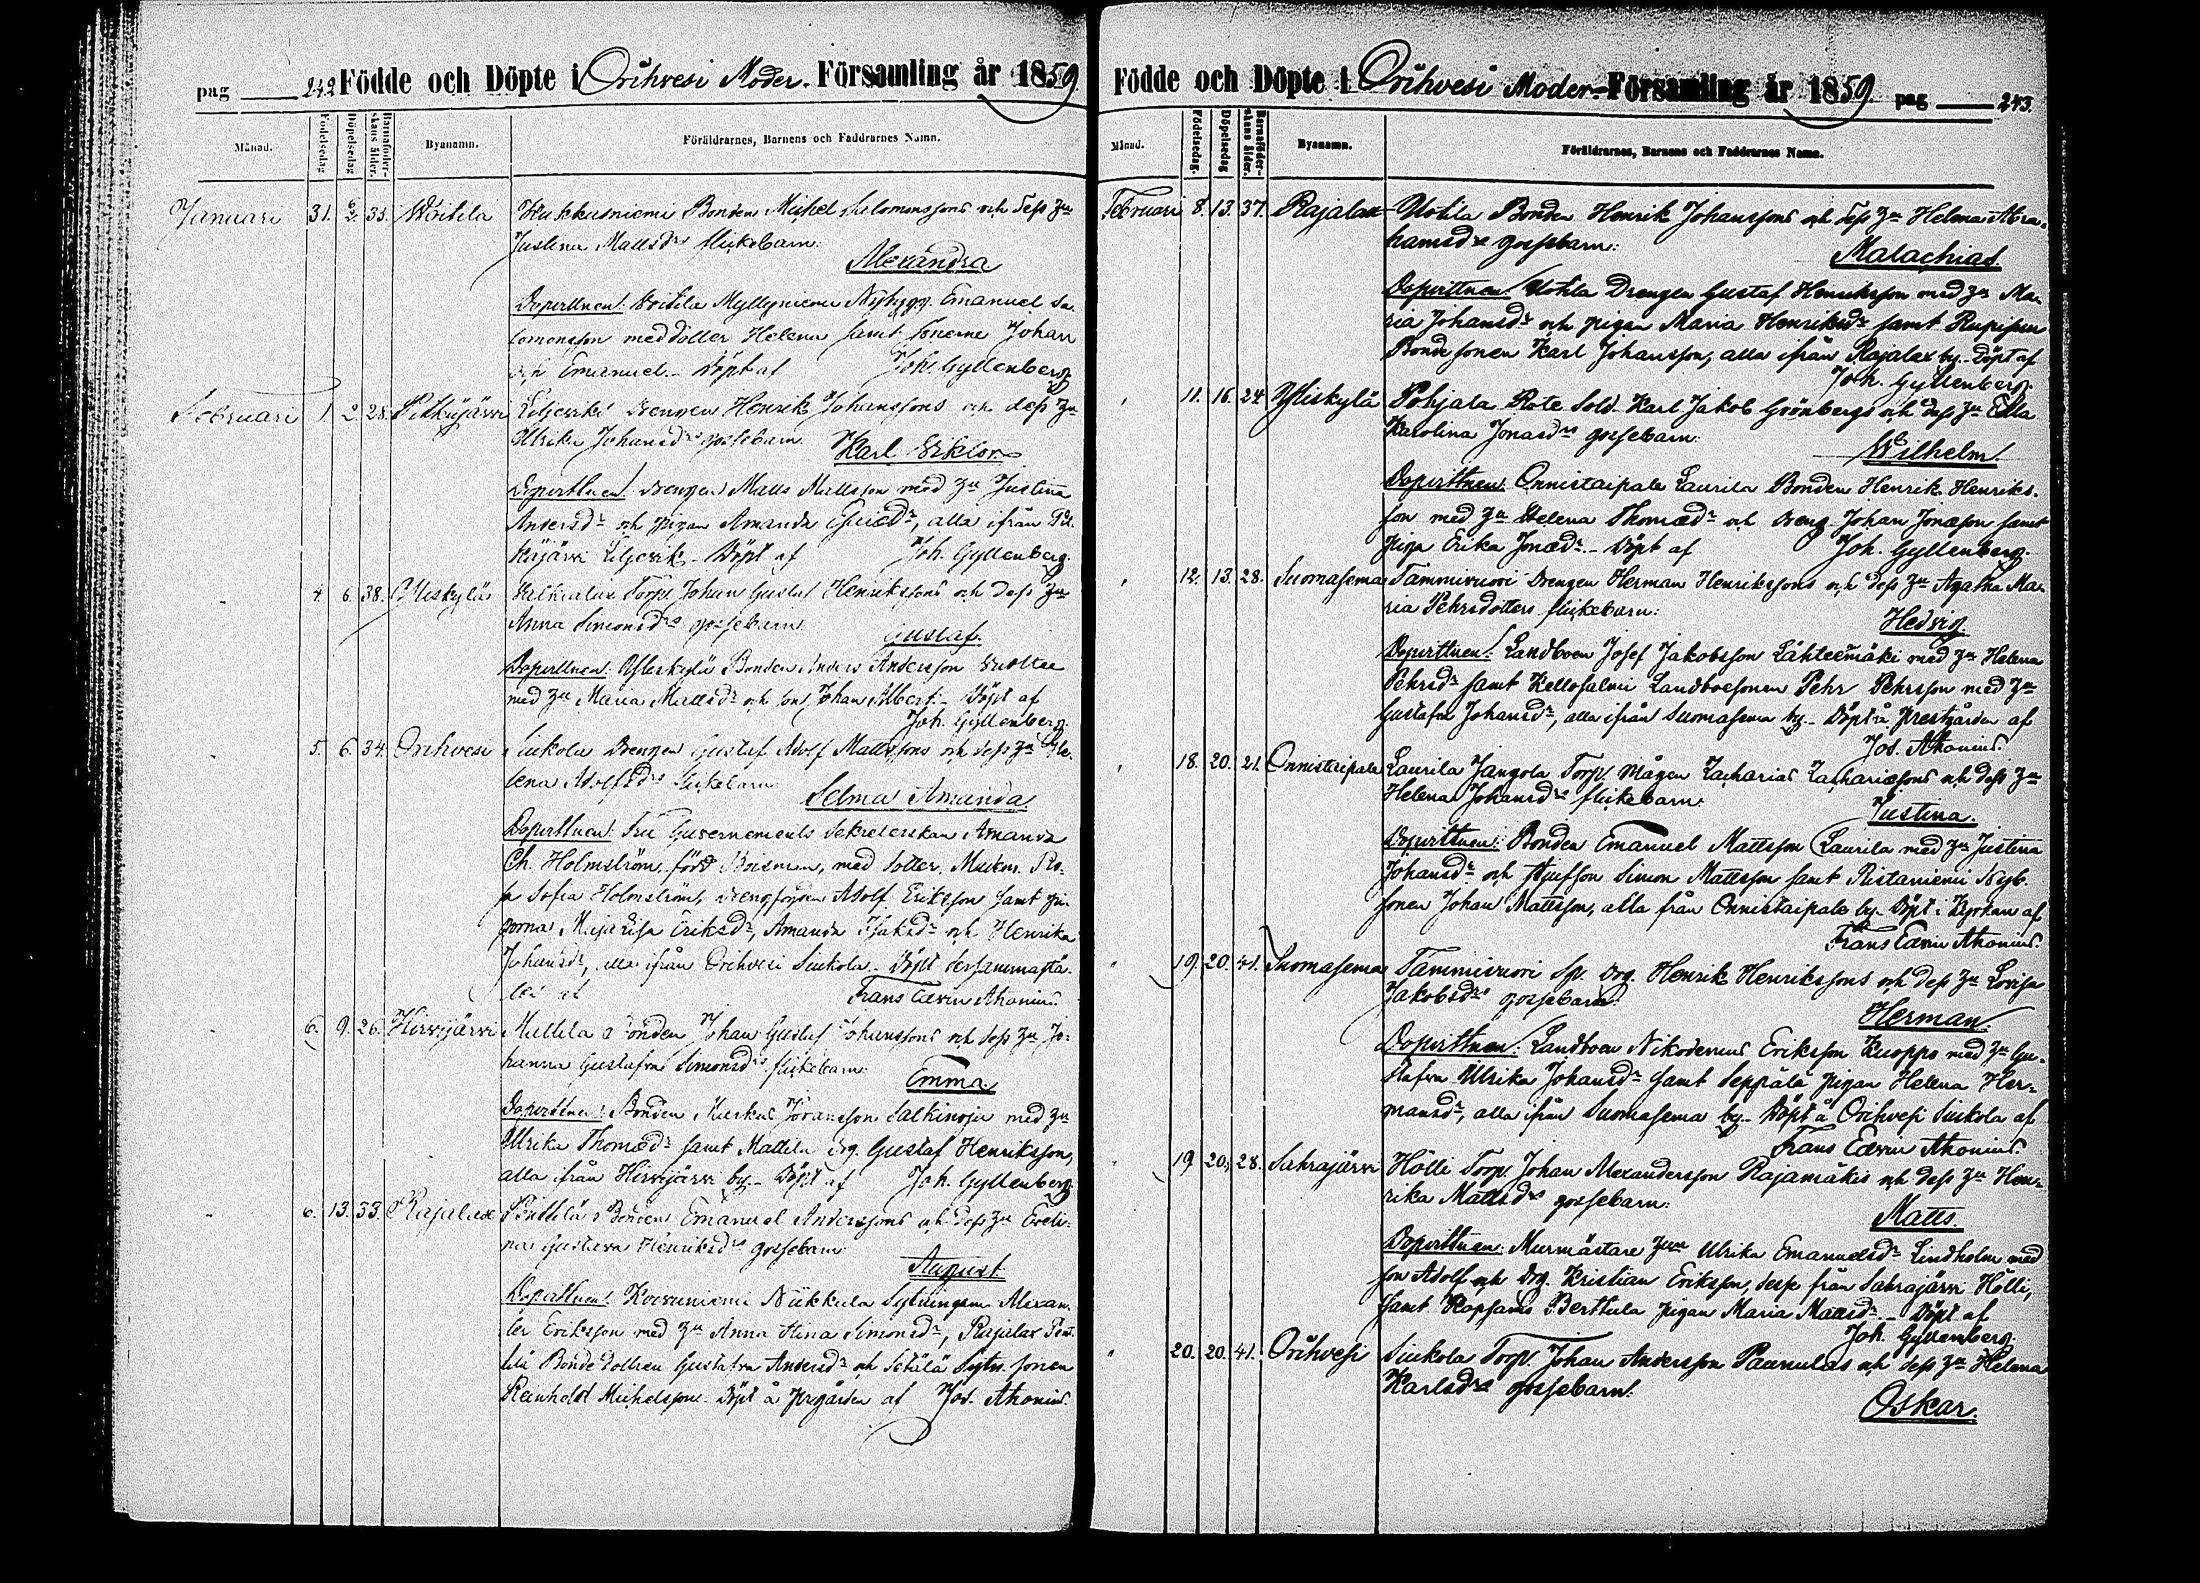 pag 242 Födde och Döpte i Orihvesi Moder-Församling år 1859.
Månad. Födelsedag. Döpelsedag. Barnaföderskans ålder. Byanamn. Föräldrarnes, Barnens och Faddrarnes Namn.
Januari 31. 6/2. 35. Woitila Hukkasniemi Bonden Mickel Salomonssons och dess Hu
Justina Mattsdrs flickebarn:
Alexandra
Dopvittnen: Woitila Myllyniemi Nybygg. Emanuel Sa-
lomonsson med dotter Helena samt sönerne Johan
och Emanuel. Döpt af Joh. Gyllenberg.
Februari 1. 2. 28. Pitkäjärvi Liljerik Drengen Henrik Johanssons och dess Hu
Ulrika Johansdrs gossebarn: Karl Viktor.
Dopvittnen: Drengen Matts Mattsson med Hu Justina
Andersdr och pigan Amanda Esaiædr, alla ifrån Pit-
käjärvi Liljerik. Döpt af Joh. Gyllenberg.
4. 6. 38. Yliskylä Torp. Johan Gustaf Henrikssons och dess Hu
Anna Simonsdrs gossebarn:
Gustaf.
Dopvittnen: Yliskylä Bonden Anders Andersson
med Hu Maria Mattsdr och son Johan Albert. Döpt af
Joh. Gyllenberg.
5. 6. 34. Orihvesi Siukola Drengen Gustaf Adolf Mattssons och dess Hu He-
lena Adolfsdrs flickebarn:
Selma Amanda
Dopvittnen: Fru Guvernements Sekreterskan Amanda
Ch. Holmström, född Boisman, med dotter Mamsn. Ro-
sa Sofia Holmström, Drengsonen Adolf Eriksson samt pi-
gorna Maja Lisa Eriksdr, Amanda Isaksdr och Henrika
Johansdr, alla ifrån Orihvesi Siukola. Döpt dersammastä-
des af Frans Edvin Ahonius.
6. 9. 26. Hirvijärvi Mattila Bonden Johan Gustaf Johanssons och dess Hu Jo-
hanna Gustafva Simonsdrs flickebarn:
Emma.
Dopvittnen: Bonden Markus Johansson Salkinoja med Hu
Ulrika Thomædr samt Mattila drg. Gustaf Henriksson,
alla ifrån Hirvijärvi by. Döpt af Joh. Gyllenberg.
6. 13. 33. Rajalax Pänttilä Bonden Emanuel Anderssons och dess Hu Eveli-
na Gustava Henriksdrs gossebarn:
August.
Dopvittnen: Koivuniemi Nikkila Sytningsm. Alexan-
der Eriksson med Hu Anna Stina Simonsdr, Rajalax Pänt-
tilä Bondedottren Gustafva Andersdr och Setälä Sytn. sonen
Reinholdt Michelsson. Döpt å prgården af Jos. Ahonius.
Födde och Döpte i Orihvesi Moder-Församling år 1859. pag 243.
Månad. Födelsedag. Döpelsedag. Barnaföderskans ålder. Byanamn. Föräldrarnes, Barnens och Faddrarnes Namn.
Februari 8. 13. 37. Rajalax Uotila Bonden Henrik Johanssons och dess Hu Helena Abra-
hamsdrs gossebarn:
Malachias.
Dopvittnen: Uotila Drengen Gustaf Henriksson med Hu Ma-
ria Johansdr och pigan Maria Henriksdr samt
Bondesonen Karl Johansson, alla ifrån Rajalax by. Döpt af
Joh. Gyllenberg.
11. 16. 24. Yliskylä Pohjala Rote Sold. Karl Jakob Grönbergs och dess Hu Edla
Karolina Jonasdrs gossebarn:
Wilhelm.
Dopvittnen: Onnistaipale Laurila Bonden Henrik Henriks-
son med Hu Helena Thomædr och dreng Johan Jonæson samt
piga Erika Jonædr. Döpt af Joh. Gyllenberg.
12. 13. 28. Suomasema Tammivuori Drengen Herman Henrikssons och dess Hu Agatha Ma-
ria Pehrsdotters flickebarn:
Hedvig.
Dopvittnen: Landboen Josef Jakobsson Lähteemäki med Hu Helena
Pehrsdr samt Kellosalmi Landboesonen Pehr Pehrsson med Hu
Gustafva Johansdr, alla ifrån Suomasema by. Döpt å prestgården af
Jos. Ahonius.
18. 20. 21. Onnistaipale Laurila Jangola Torp. Mågen Zacharias Zachariæsons och dess Hu
Helena Johansdrs flickebarn:
Justina.
Dopvittnen: Bonden Emanuel Mattsson Laurila med Hu Justina
Johansdr och Simon Mattsson samt Ristaniemi Nyb.
sonen Johan Mattsson, alla från Onnistaipale by. Döpt i Kyrkan af
Frans Edvin Ahonius.
19. 20. 41. Suomasema Tammivuori Sp. drg. Henrik Henrikssons och dess Hu Lovisa
Jakobsdrs gossebarn:
Herman.
Dopvittnen: Landboen Nikodemus Eriksson Kuoppa med Hu Gu-
stafva Ulrika Johansdr samt Seppälä pigan Helena Her-
mansdr, alla ifrån Suomasema by. Döpt å Orihvesi Siukola af
Frans Edvin Ahonius.
19 20. 28. Sahrajärvi Hölli Torp. Johan Alexandersson Rajamäkis och dess Hu Hen-
rika Mattsdrs gossebarn:
Matts.
Dopvittnen: Murmästare Hun Ulrika Emanuelsdr Lindholm med
son Adolf och drg. Kristian Eriksson, desse från Sahrajärvi Hölli,
samt Karppala pigan Maria Mattsdr. Döpt af
Joh. Gyllenberg.
20. 20. 41. Orihvesi Siukola Torp. Johan Andersson Paunulas och dess Hu Helena
Karlsdrs gossebarn:
Oskar.